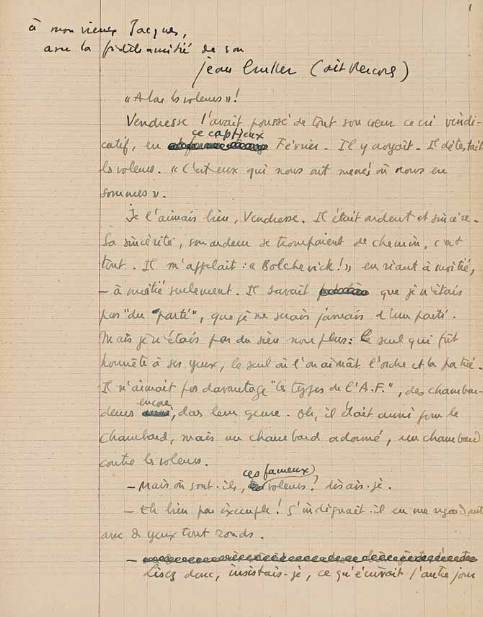 1
à mon vieux Jacques,
avec la fidèle amitié de son
Jean Bruller (dit Vercors)
« A bas les voleurs » !
Vendresse l'avait poussé de tout son cœur ce cri vindi-
catif, en ce captieux Février. Il y croyait. Il détestait
les voleurs. « C'est eux qui nous ont menés où nous en
sommes ».
Je l'aimais bien, Vendresse. Il était ardent et sincère.
Sa sincérité, son ardeur se trompaient de chemin, c'est
tout. Il m'appelait : « Bolchevick ! » en riant à moitié,
– à moitié seulement. Il savait que je n'étais
pas "du parti", que je ne serais jamais d'un parti.
Mais je n'étais pas du sien non plus : le seul qui fût
honnête à ses yeux, le seul où l'on aimât l'ordre et la patrie.
Il n'aimait pas davantage "les types de l'A.F.", des chambar-
deurs encore, dans leur genre. Oh, il était aussi pour le
chambard, mais un chambard ordonné, un chambard
contre les voleurs.
– Mais où sont-ils, ces fameux voleurs ? disais-je.
– Eh bien par exemple ! s'indignait-il en me regardant
avec des yeux tout ronds.
–
Lisez donc, insistais-je, ce qu'écrivait l'autre jour